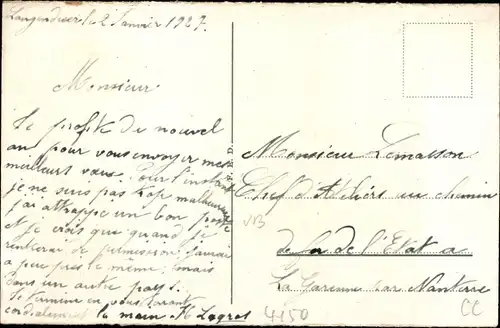 le 2 Janvier 1927.
Monsieur
Je profite du nouvel
an pour vous envoyer mes
meilleurs vœux. Pour l'instant
je ne suis pas trop malheureux
j'ai attrappé un bon poste
et je crois que quand je
rentrerai de permission j'aurai
à peu près le même, mais
dans un autre pays.
Je termine en vous serrant
cordialement la main H Lagros
Monsieur Lemasson
Chef d'Ateliers au chemin
de fer de l'Etat a
La Garenne par Nanterre
4150
CC